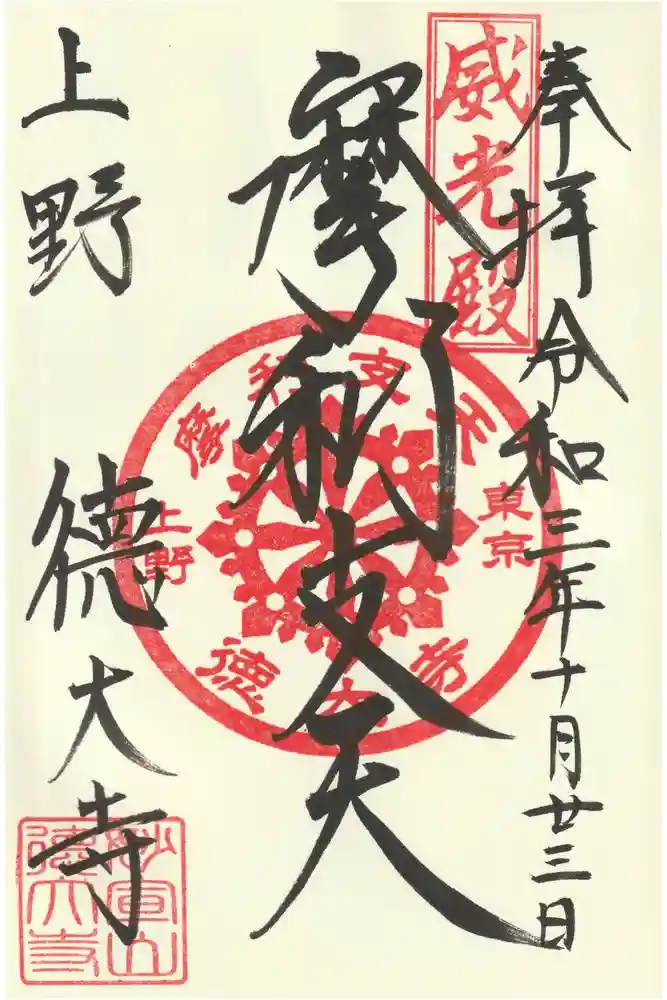 奉拝
令和三年十月廿三日
威光殿
摩利支天
摩利支天
東京
上野
徳大寺
上野
徳大寺
妙宣山
徳大寺